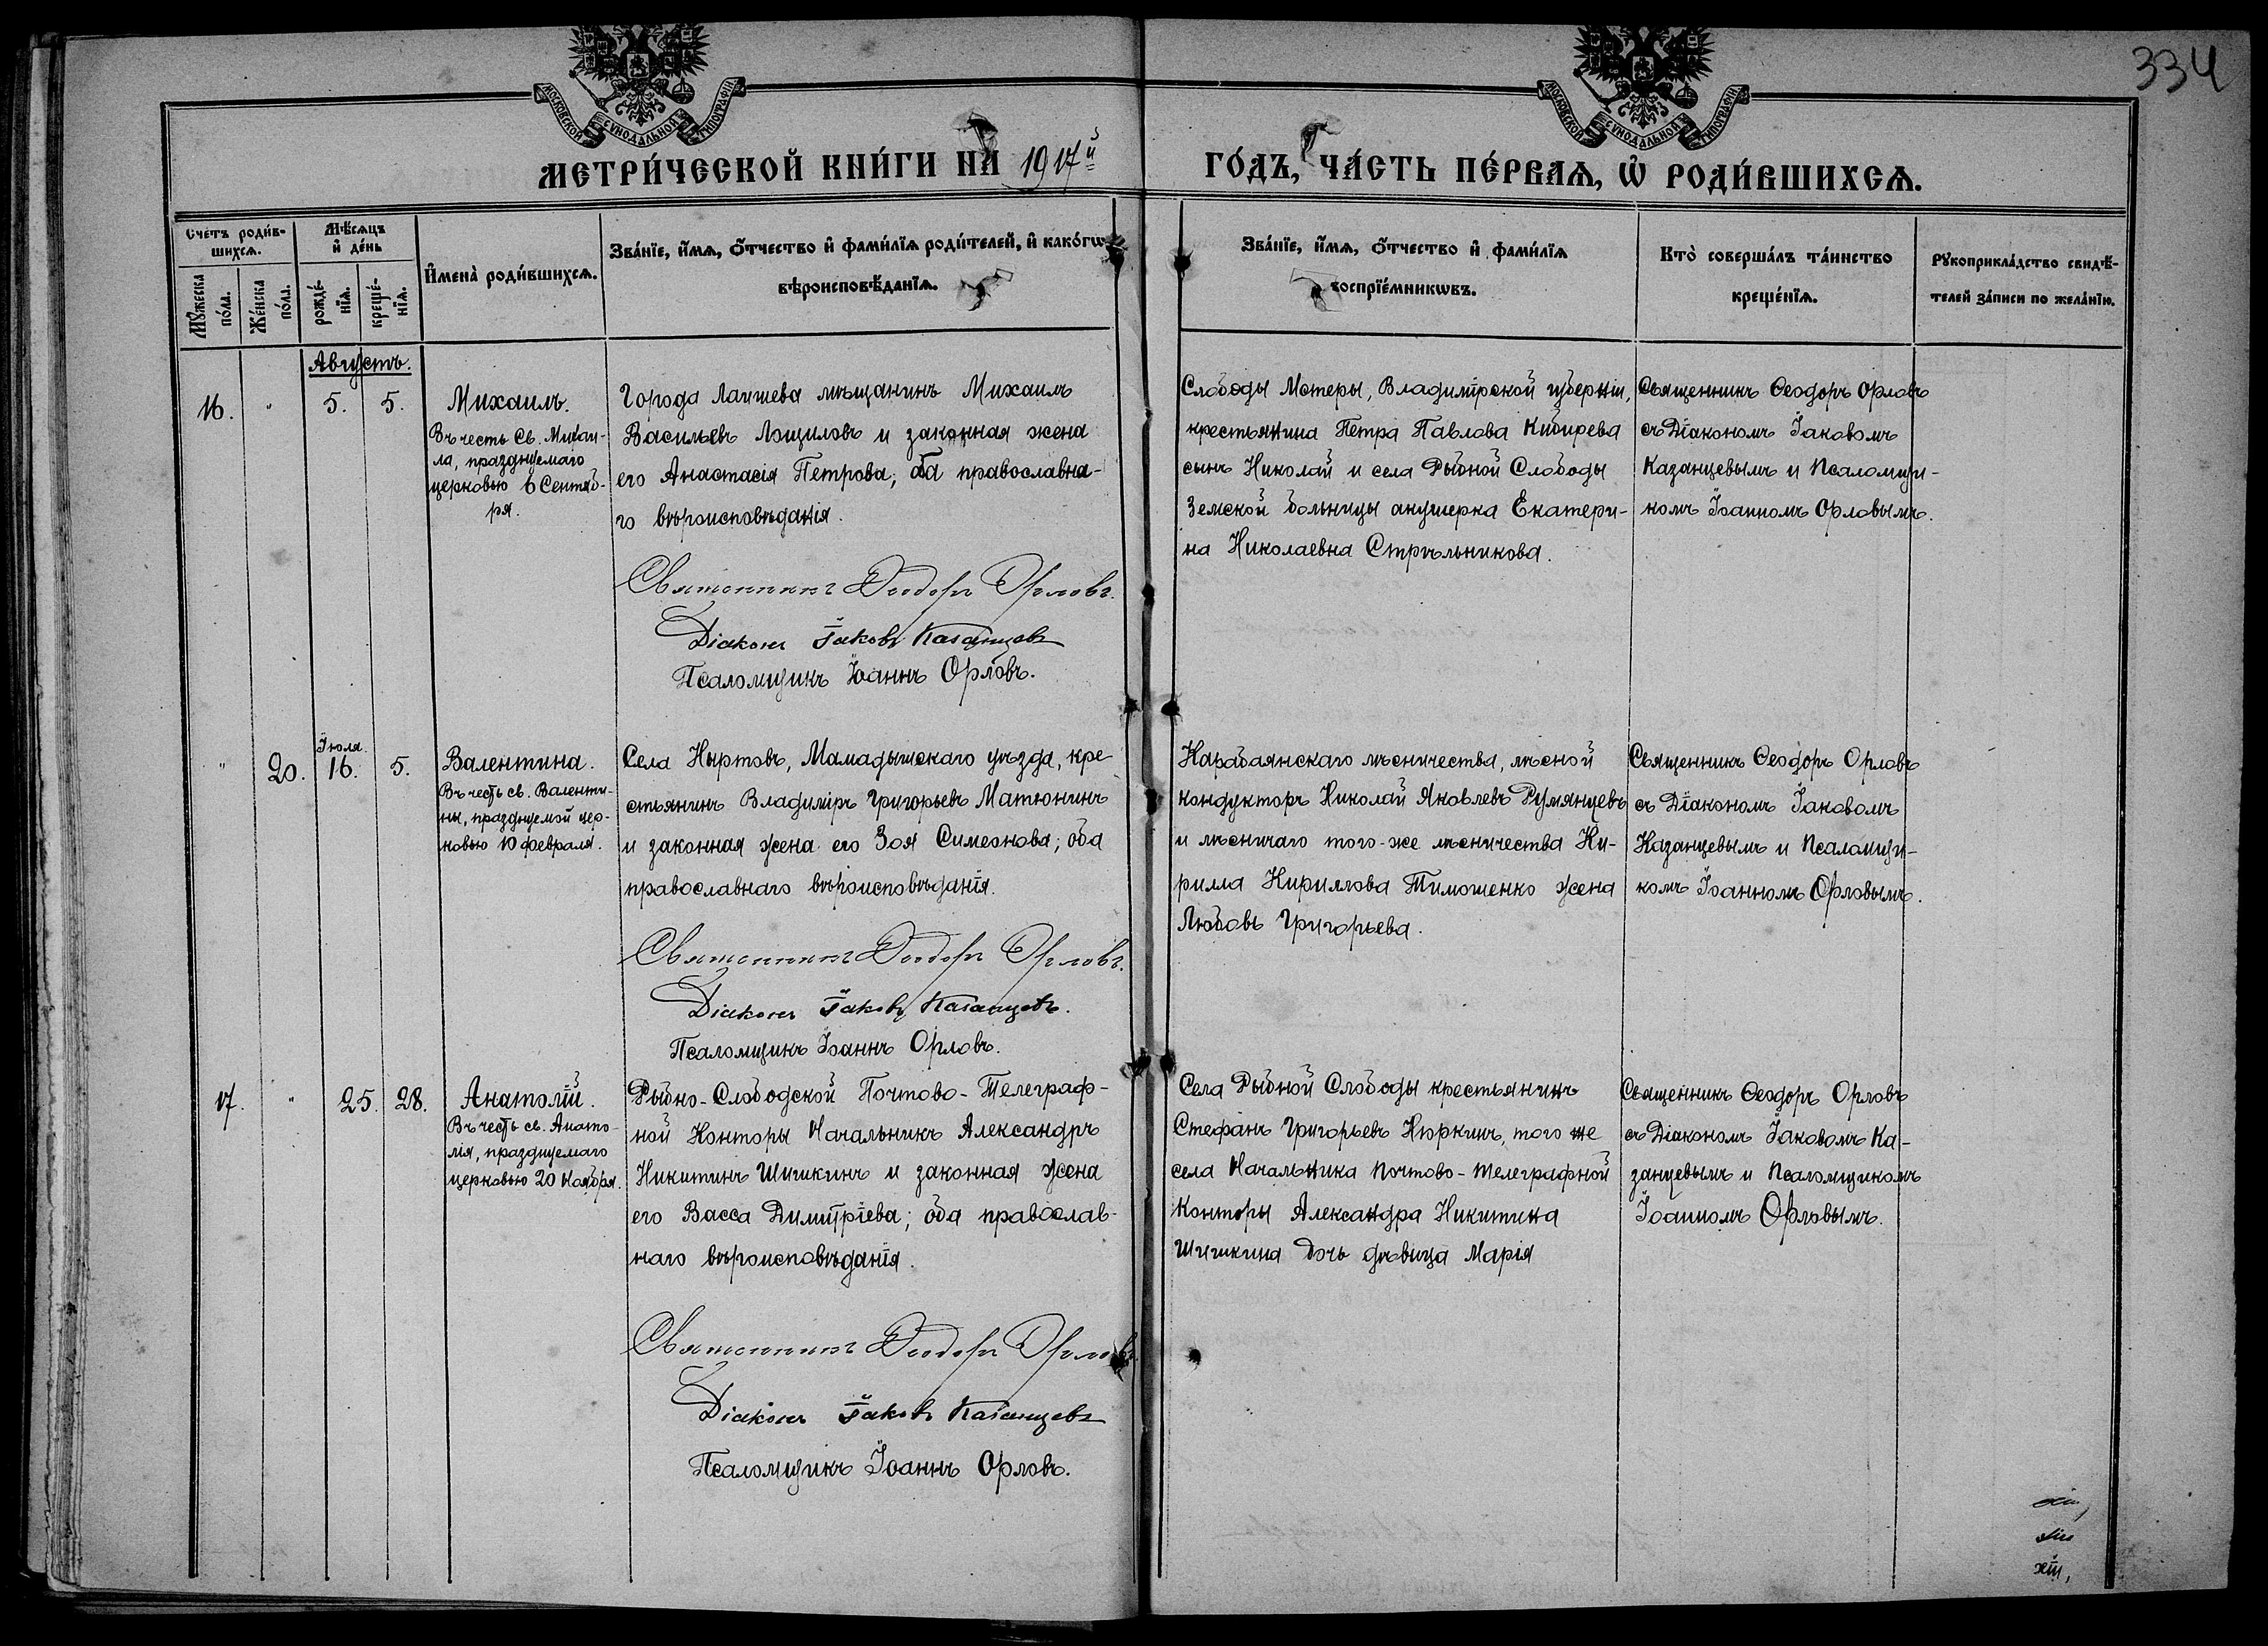 334
МОСКОВСКОЙ СѴНОДАЛЬНОЙ ТИПОГРАФІИ
МОСКОВСКОЙ СѴНОДАЛЬНОЙ ТИПОГРАФІИ
МЕТРИ́ЧЕСКОЙ КНИ́ГИ НА 1917й
ГО́ДЪ, ЧА́СТЬ ПЕ́РВАѦ, Ѽ РОДИ́ВШИХСѦ.
Сче́тъ роди́в-
шихсѧ.
Мꙋ́жеска
по́ла.
Же́нска
по́ла.
Мѣ́сѧцъ
и҆ де́нь
рожде́-
нїѧ.
креще́-
нїѧ.
И҆мена̀ роди́вшихсѧ.
Зва́нїе, и҆́мѧ, ѻ҆́тчество и҆ фами́лїѧ роди́телей, и҆ како́гѡ
вѣроисповѣ́данїѧ.
Зва́нїе, и҆́мѧ, ѻ҆́тчество и҆ фами́лїѧ
воспрїе́мникѡвъ.
Кто̀ соверша́лъ та́инство
креще́нїѧ.
Рꙋкоприкла́дство свидѣ́-
телей за́писи по жела́нїю.
Августъ.
16. " 5. 5.
Михаилъ.
Въ честь Св. Михаи-
ла, празднуемаго
церковью 6 Сентяб-
ря.
Города Лаишева мѣщанинъ Михаилъ
Васильевъ Лощиловъ и законная жена
его Анастасія Петрова; оба православна-
го вѣроисповѣданія.
Священникъ Ѳеодоръ Орловъ.
Діаконъ Іаковъ Казанцевъ
Псаломщикъ Іоаннъ Орловъ.
Слободы Мстеры, Владимірской губерніи,
крестьянина Петра Павлова Кибирева
сынъ Николай и села Рыбной Слободы
Земской больницы акушерка Екатери-
на Николаевна Стрѣльникова.
Священникъ Ѳеодоръ Орловъ
съ Діакономъ Іаковомъ
Казанцевымъ и Псаломщи-
комъ Іоанномъ Орловымъ.
Іюля.
" 20. 16. 5.
Валентина.
Въ честь св. Валенти-
ны, празднуемой цер-
ковью 10 февраля.
Села Ныртовъ, Мамадышскаго уѣзда, кре
стьянинъ Владиміръ Григорьевъ Матюнинъ
и законная жена его Зоя Симеонова; оба
православнаго вѣроисповѣданія.
Священникъ Ѳеодоръ Орловъ.
Діаконъ Іаковъ Казанцевъ.
Псаломщикъ Іоаннъ Орловъ.
Карабаянскаго лѣсничества, лѣсной
кондукторъ Николай Яковлевъ Румянцевъ
и лѣсничаго того-же лѣсничества Ки-
рилла Кириллова Тимошенко жена
Любовь Григорьева.
Священникъ Ѳеодоръ Орловъ
съ Діакономъ Іаковомъ
Казанцевымъ и Псаломщи-
комъ Іоанномъ Орловымъ.
17. " 25. 28.
Анатолій.
Въ честь св. Анато-
лія, празднуемаго
церковью 20 Ноября.
Рыбно-Слободской Почтово-Телеграф-
ной Конторы Начальникъ Александръ
Никитинъ Шишкинъ и законная жена
его Васса Димитріева; оба православ-
наго вѣроисповѣданія.
Священникъ Ѳеодоръ Орловъ
Діаконъ Іаковъ Казанцевъ
Псаломщикъ Іоаннъ Орловъ.
Села Рыбной Слободы крестьянинъ
Стефанъ Григорьевъ Нюркинъ, того же
села Начальника почтово-телеграфной
Конторы Александра Никитина
Шишкина дочь дѣвица Марія
Священникъ Ѳеодоръ Орловъ
съ Діакономъ Іаковомъ Ка-
занцевымъ и Псаломщикомъ
Іоанномъ Орловымъ.